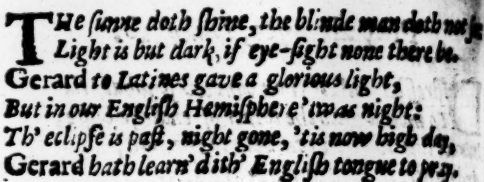 THe sunne doth shine, the blinde man doth not see
Light is but dark, if eye-sight none there be.
Gerard to Latines gave a glorious light,
But in our English Hemisphere 'twas night:
Th' eclipse is past, night gone, 'tis now high day,
Gerard hath learn'd ith' English tongue to pray.